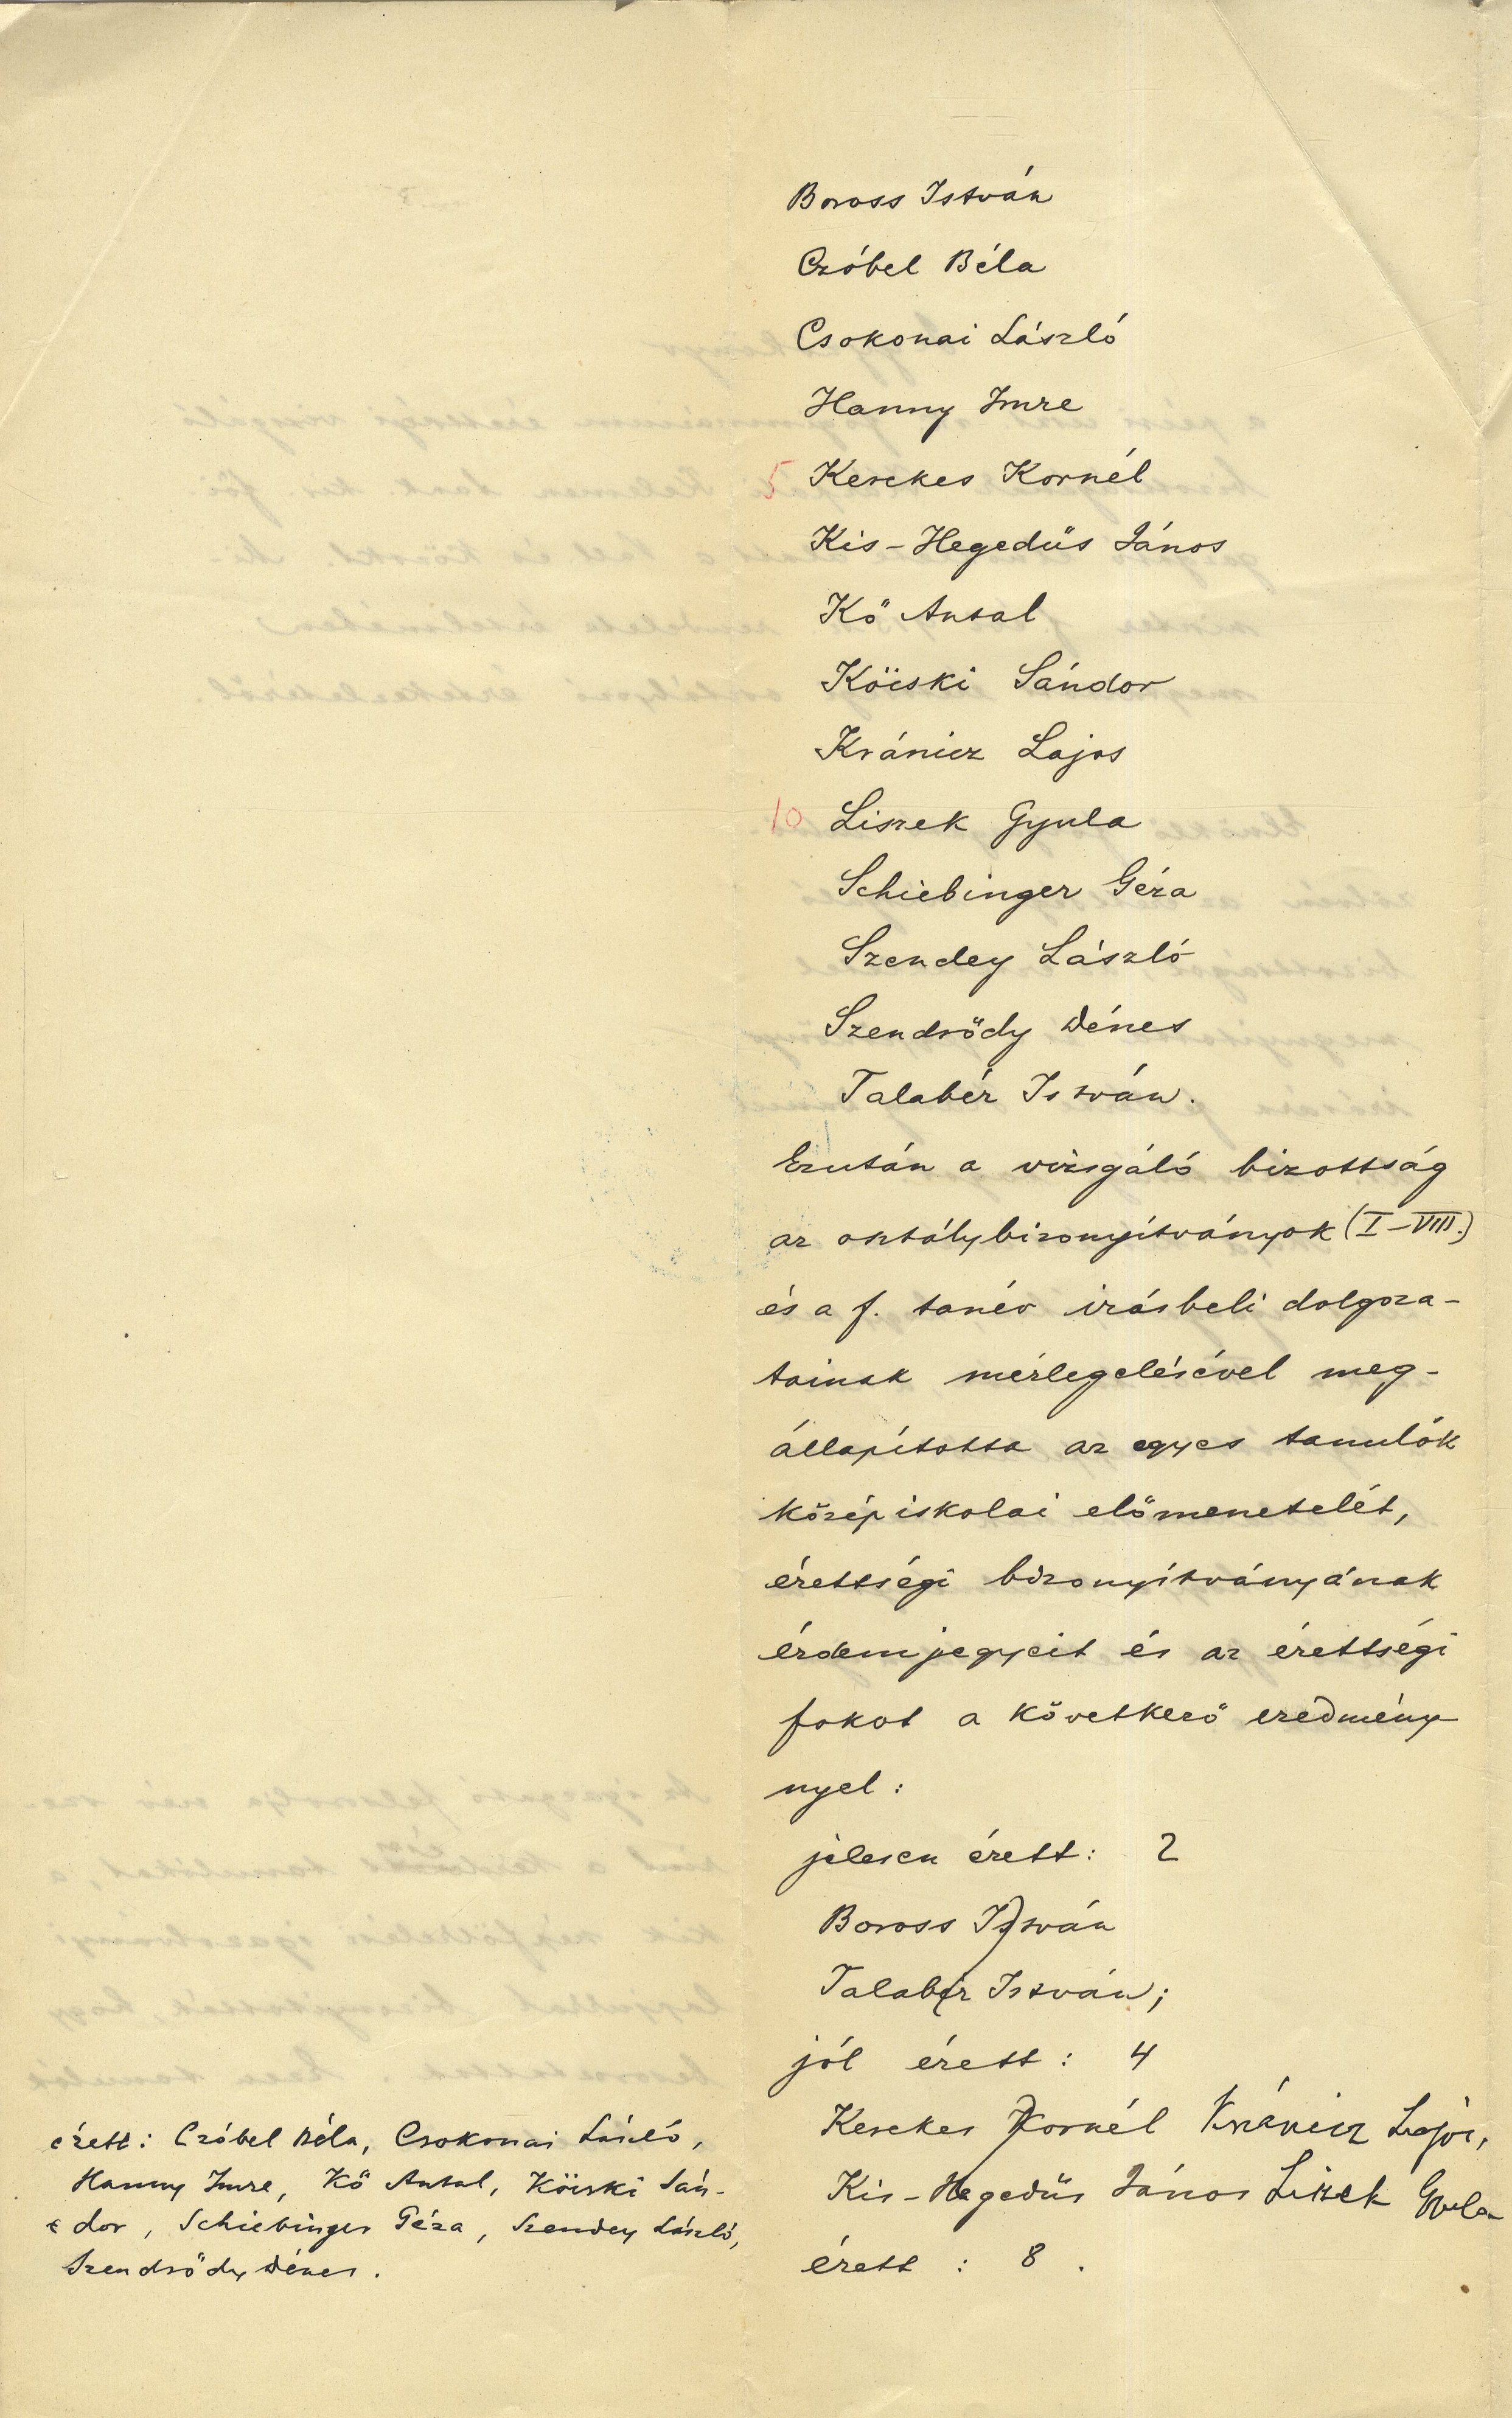 Boross István
Czóbel Béla
Csokonai László
Hanny Imre
5 Kerekes Kornél
Kis-Hegedüs János
Kő Antal
Köcski Sándor
Kránicz Lajos
10 Liszek Gyula
Schiebinger Géza
Szendey László
Szendrődy Dénes
Talabér István.
Ezután a vizsgáló bizottság
az osztálybizonyítványok (I–VIII.)
és a f. tanév irásbeli dolgoza-
tainak mérlegelésével meg-
állapította az egyes tanulók
középiskolai előmenetelét,
érettségi bizonyítványának
érdemjegyeit és az érettségi
fokot a következő eredmény
nyel:
jelesen érett: 2
Boross István
Talabér István;
jól érett: 4
Kerekes Kornél Kránicz Lajos,
Kis-Hegedüs János Liszek Gyula
érett : 8 .
érett: Czóbel Béla, Csokonai László,
Hanny Imre, Kő Antal, Köcski Sán-
dor, Schiebinger Géza, Szendey László,
Szendrődy Dénes.